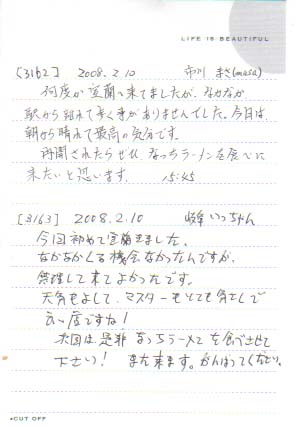 LIFE IS BEAUTIFUL
[3162] 2008.2.10 市川 まさ(masa)
何度か室蘭へ来てましたが、なかなか
駅から離れて歩く事がありませんでした。今日は、
朝から晴れて最高の気分です。
再開されたらぜひ、なっちラーメンを食べに
来たいと思います。 15:45
[3163] 2008.2.10 岐阜 いっちゃん
今回初めて室蘭きました。
なかなかくる機会なかったんですが、
無理して来てよかったです。
天気もよくて、マスターもとても気さくで
良い店ですね!
次回は是非 なっちラーメンを食べさせて
下さい! また来ます。がんばってください。
CUT OFF